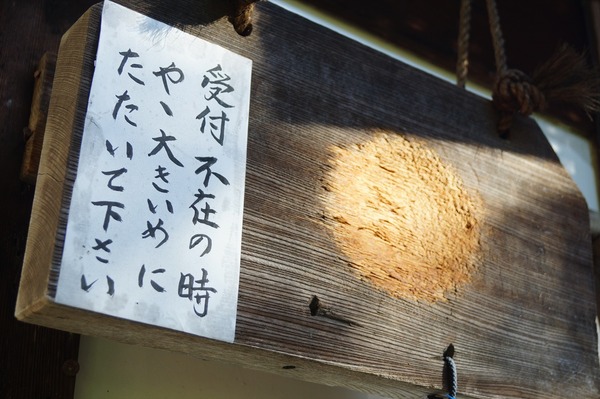 受付不在の時
やゝ大きいめに
たたいて下さい